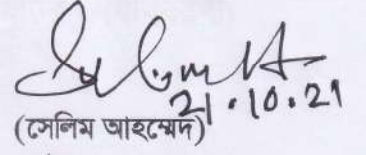 21.10.21
(সেলিম আহম্মেদ)